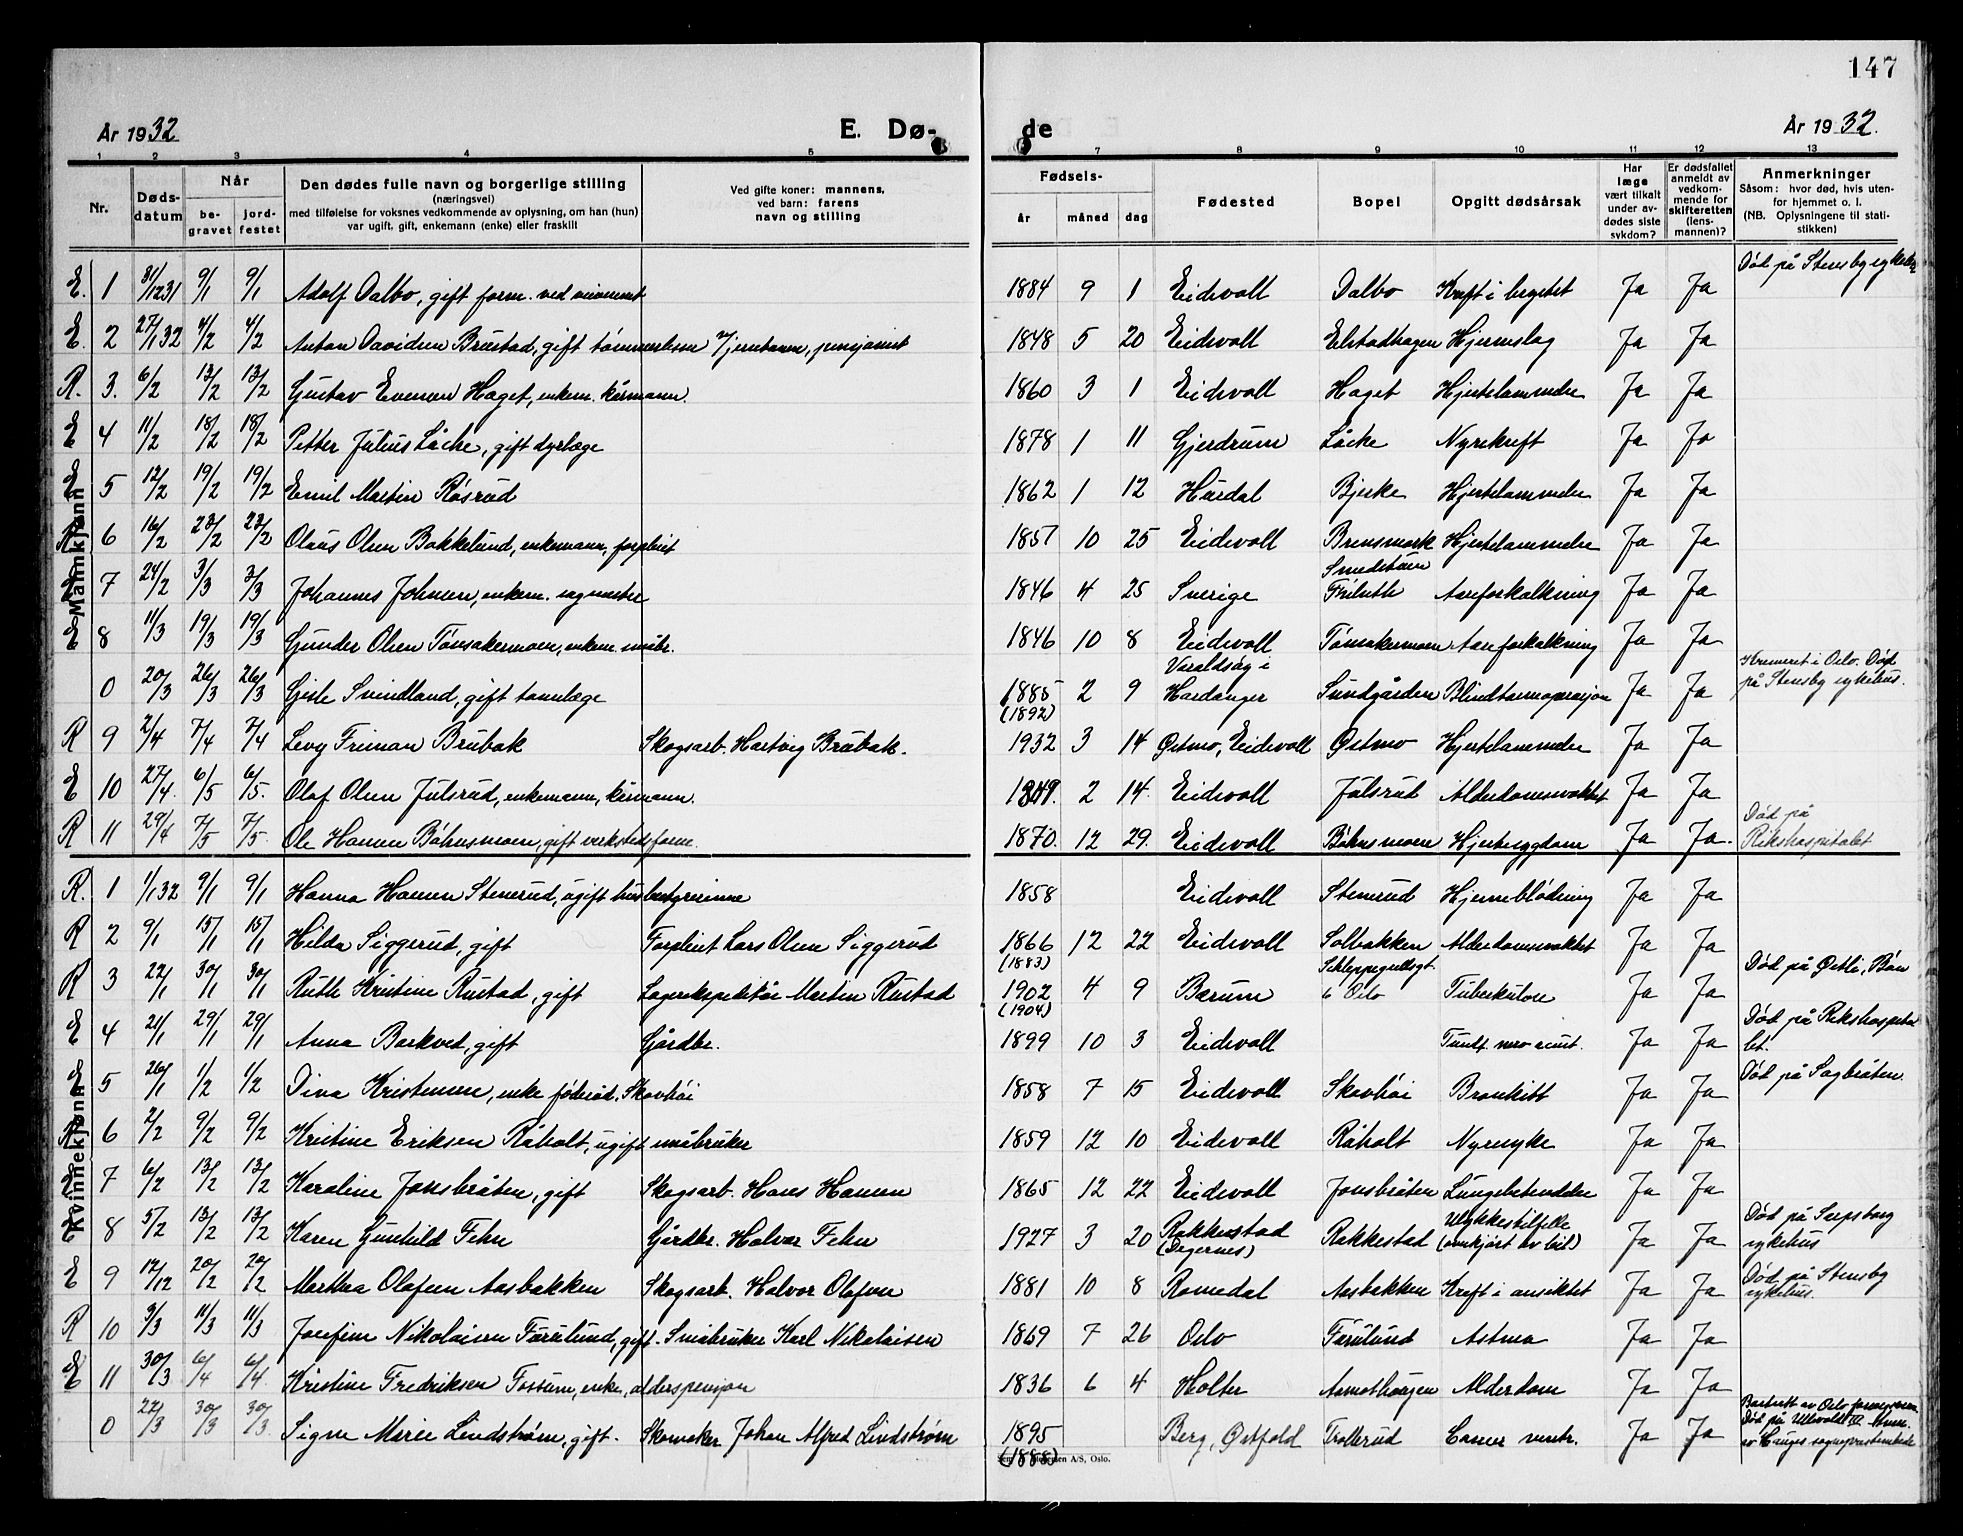 147
År 1932 E. Dø- de År 1932.
1 2 3 4 5 7 8 9 10 11 12 13
Nr. Dødsdatum Når begravet jordfestet Den dødes fulle navn og borgerlige stilling (næringsvei) med tilføielse for voksnes vedkommende av oplysning, om han (hun) var ugift, gift, enkemann (enke) eller fraskilt Ved gifte koner: mannens, ved barn: farens navn og stilling Fødsels- år måned dag Fødested Bopel Opgitt dødsårsak Har læge vært tilkalt under avdødes siste sykdom? Er dødsfallet anmeldt av vedkommende for skifteretten (lensmannen)? Anmerkninger Såsom: hvor død, hvis utenfor hjemmet o. l. (NB. Oplysningene til statistikken)
Mannkjønn
E. 1 31/12 31 9/1 9/1 Adolf Dalbo, gift form. ved 1884 9 1 Eidsvoll Dalbo Kreft i Ja Ja Død på Stensby sykehus
E. 2 27/1 32 4/2 4/2 Anton Davidsen Brustad, gift pensjonist 1848 5 20 Eidsvoll Elstadhagen Hjerneslag Ja Ja
R. 3. 6/2 13/2 13/2 Gustav Evensen Haget, enkem. kürmann. 1860 3 1 Eidsvoll Haget Hjertelammelse Ja Ja
E 4 11/2 18/2 18/2 Petter Julius Låche, gift dyrlæge 1878 1 11 Gjerdrum Låcke Nyrekreft Ja Ja
E 5 12/2 19/2 19/2 Emil Martin Røsrud 1862 1 12 Hurdal Bjerke Hjertelammelse Ja Ja
R 6 16/2 23/2 23/2 Olaus Olsen Bakkelund, enkemann, forpleiet 1857 10 25 Eidsvoll Brensmork Hjertelammelse Ja Ja
E 7 24/2 3/3 3/3 Johannes Johnsen, enkem. sagmester 1846 4 25 Sverige Smedstuen Aareforkalkning Ja Ja
E 8 11/3 19/3 19/3 Gunder Olsen Tønsakermoen, enkem. småbr. 1846 10 8 Eidsvoll Tønsakermoen Aareforkalkning Ja Ja
0 20/3 26/3 26/3 Gisle Svindland, gift tannlæge 1885 (1892) 2 9 Varaldsøy i Hardanger Sundgården Blindtarmoperasjon Ja Ja Kremeret i Oslo. Død på Stensby sykehus.
R 9 2/4 7/4 7/4 Levy Friman Brubak Skogsarb. Hartvig Brubak. 1932 3 14 Østmo, Eidsvoll Østmo Hjertelammelse Ja Ja
E 10 27/4. 6/5 6/5. Olaf Olsen Julsrud, enkemann, kürmann. 1849. 2 14. Eidsvoll Julsrud Alderdomssvakhet Ja Ja
R 11 29/4 7/5 7/5. Ole Hansen Bøhnsmoen, gift verkstedsform. 1870. 12 29. Eidsvoll Bøhnsmoen Hjertesygdom Ja Ja. Død på Rikshospitalet
Kvinnekjønn
R. 1 1/1 32 9/1 9/1 Hanna Hansen Stenerud, ugift husbestyrerinne 1858 Eidsvoll Stenerud Hjerneblødning Ja Ja
R 2 9/1 15/1 15/1 Hilda Siggerud, gift Forpleiet Lars Olsen Siggerud 1866 (1883) 12 22 Eidsvoll Solbakken Alderdomssvakhet Ja Ja
R 3 22/1 30/1 30/1 Ruth Kristine Rustad, gift Lagerekspeditør Martin Rustad 1902 (1904) 4 9 Bærum Schleppegrellsgt. 6 Oslo Tuberkulose Ja Ja Død på Østli, Bøn
E 4 21/1 29/1 29/1 Anna Barkved, gift Gårdbr. 1899 10 3 Eidsvoll Ja Ja Død på Rikshospitalet.
E 5 26/1 1/2 1/2 Dina Kristensen, enke føderåd. Skovhøi 1858 7 15 Eidsvoll Skovhøi Bronkitt Ja Ja Død på Sagbråten.
R 6 2/2 9/2 9/2 Kristine Eriksen Råholt, ugift småbruker 1859 12 10 Eidsvoll Råholt Nyresyke Ja Ja
E 7 6/2 13/2 13/2 Karoline Jonsbråten, gift Skogsarb. Hans Hansen 1865 12 22 Eidsvoll Jonsbråten Lungebetendelse Ja Ja
E 8 5/2 13/2 13/2 Karen Gunhild Fehn Gårdbr. Halvor Fehn 1927 3 20 Rakkestad (Degernes) Rakkestad Ulykkestilfelle (overkjørt av bil) Ja Ja Død på Sarpsborg sykehus
E 9 12/12 20/2 20/2 Marthea Olafsen Aasbakken Skogsarb. Halvor Olafsen 1881 10 8 Romedal Aasbakken Kreft i ansiktet Ja Ja Død på Stensby sykehus.
R 10 3/3 11/3 11/3 Josefine Nikolaisen Furulund, gift. Småbruker Karl Nikolaisen 1869 7 26 Oslo Furulund Astma Ja Ja
E 11 30/3 6/4 6/4. Kristine Fredriksen Fossum, enke, alderspensjon 1836 6 4 Holter Aamothaugen Alderdom Ja Ja
0 22/3 30/3 30/3 Signe Marie Lindstrøm, gift. Skomaker Johan Alfred Lindstrøm 1895 (1888) Berg, Østfold Trollerud Cancer ventr. Ja Ja Død på Ullevold av Hauges sogneprestembede
A/S, Oslo.